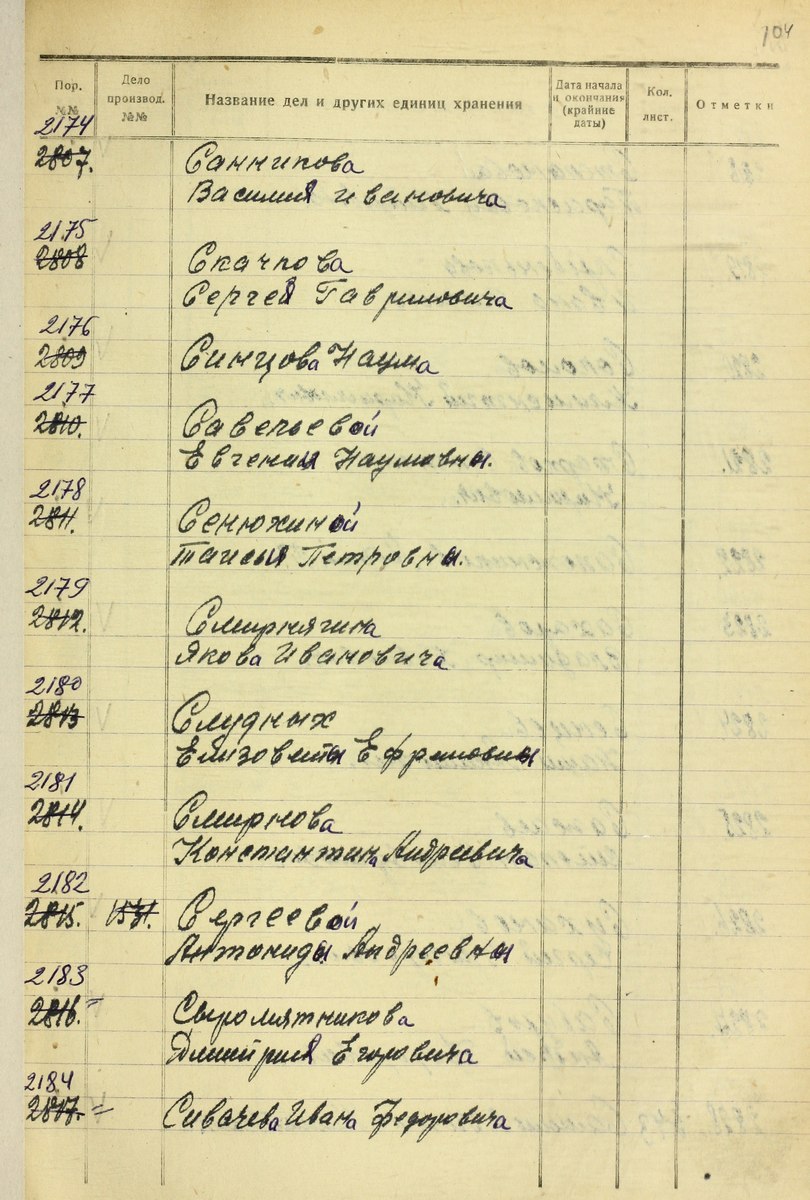 104
Пор. №№
Дело производ. №№
Название дел и других единиц хранения
Дата начала и окончания (крайние даты)
Кол. лист.
Отметки
2174
2807. Санникова
Василия Ивановича
2175
2808 Скачкова
Сергея Гавриловича
2176
2809 Синцова Наума
2177
2810. Савельевой
Евгении Наумовны.
2178
2811. Сенюхиной
Таисья Петровны.
2179
2812. Смирнягина
Якова Ивановича
2180
2813 Слудных
Елизовиты Ефримовны
2181
2814. Смирнова
Константина Андреевича
2182
2815. 1531. Сергеевой
Антониды Андреевны
2183
2816. Сыромятникова
Дмитрия Егоровича
2184
2817. Сивачева Ивана Федоровича